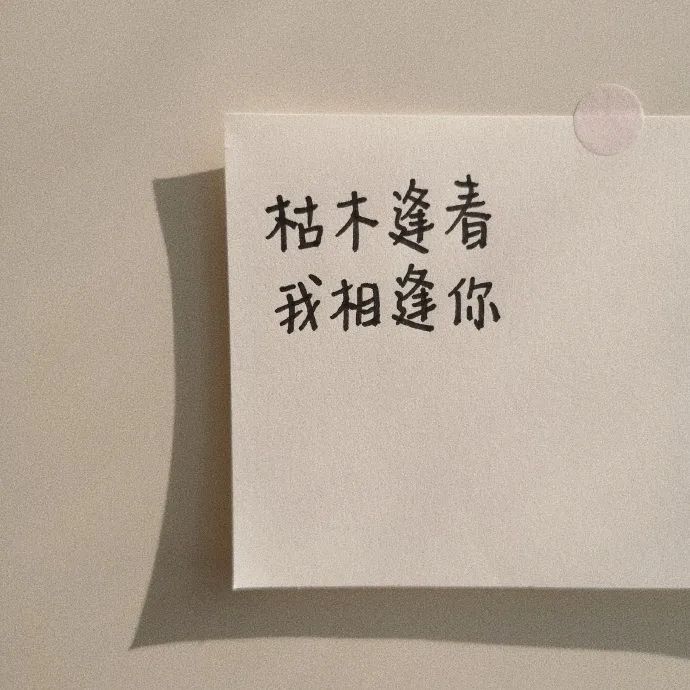 枯木逢春
我相逢你